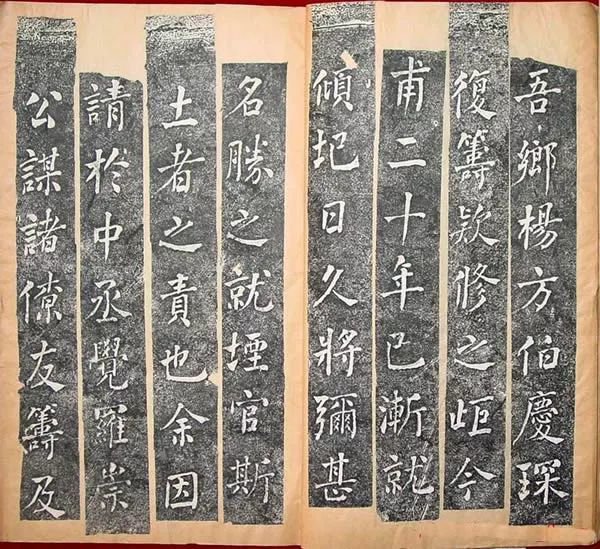 吾鄉楊方伯慶琛
復籌款修之岠今
甫二十年已漸就
傾圮日久將彌甚
名勝之就堙官斯
土者之責也余因
請於中丞覺羅崇
公謀諸僚友籌及